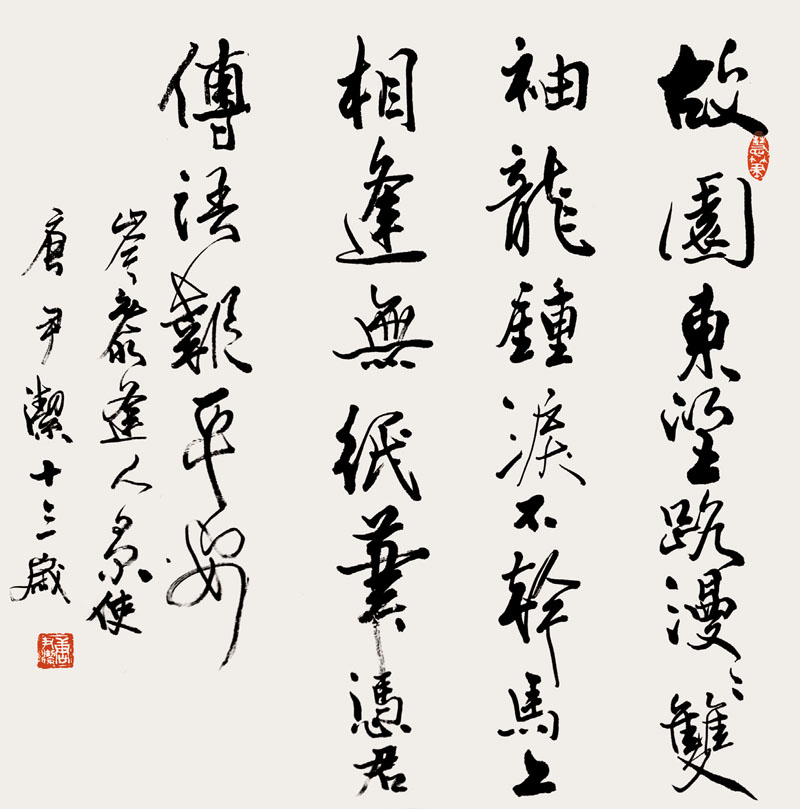 故園東望路漫〻雙
袖龍鍾淚不幹馬上
相逢無紙筆憑君
傳語報平安
岑參逢入京使
唐尹潔十三歲
唐尹潔